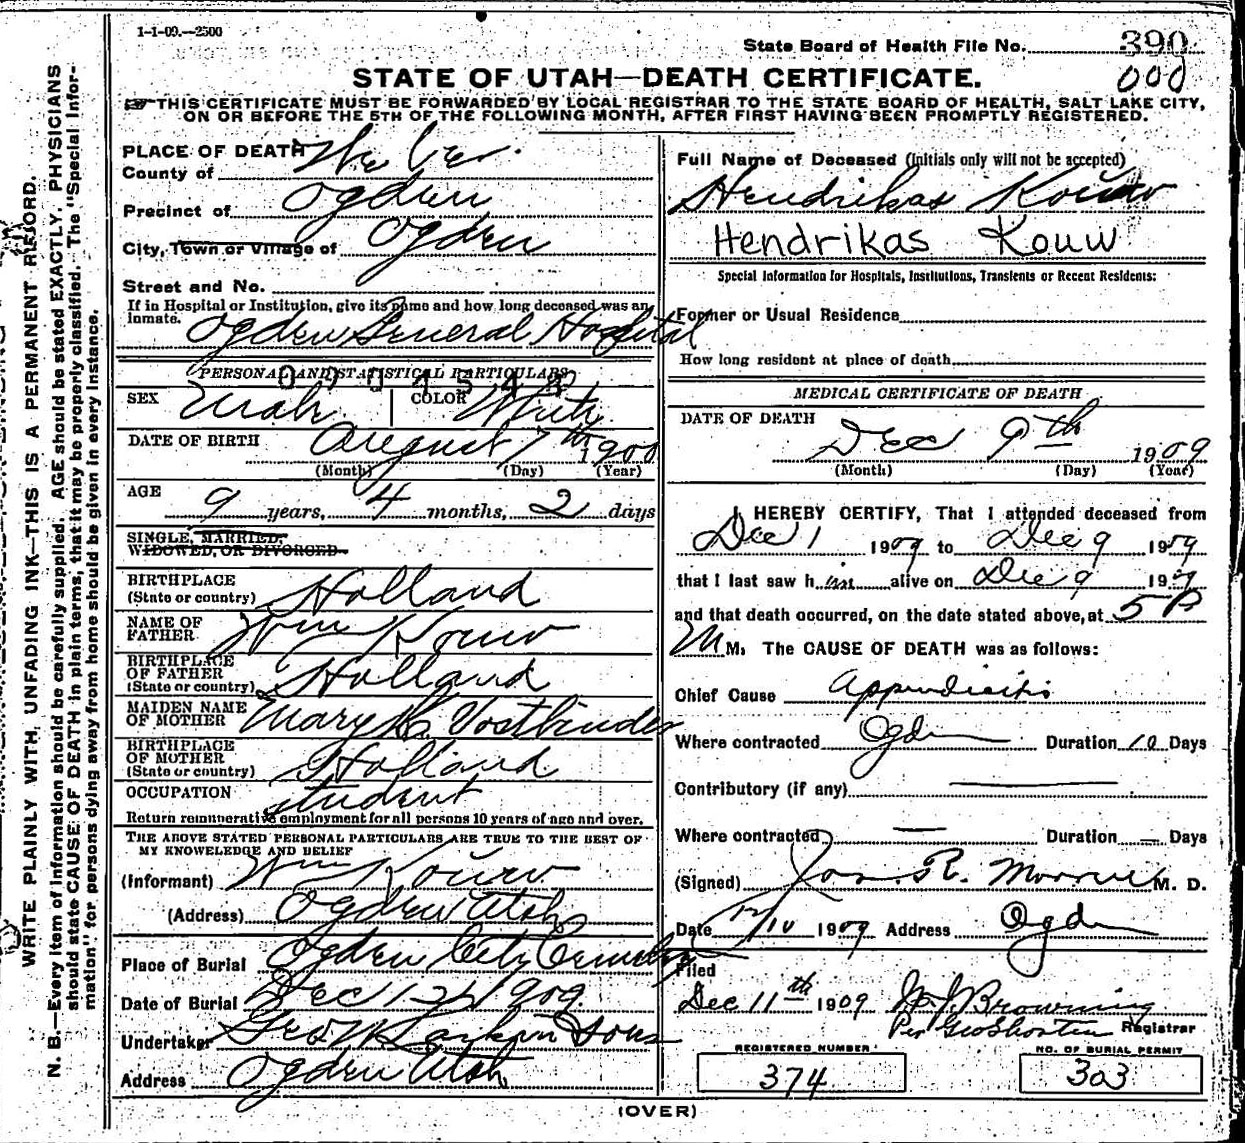 1-1-09.—2500
State Board of Health File No. 390
000
STATE OF UTAH—DEATH CERTIFICATE.
THIS CERTIFICATE MUST BE FORWARDED BY LOCAL REGISTRAR TO THE STATE BOARD OF HEALTH, SALT LAKE CITY,
ON OR BEFORE THE 5TH OF THE FOLLOWING MONTH, AFTER FIRST HAVING BEEN PROMPTLY REGISTERED.
WRITE PLAINLY WITH UNFADING INK—THIS IS A PERMANENT RECORD.
N. B.—Every item of information should be carefully supplied. AGE should be stated EXACTLY. PHYSICIANS
should state CAUSE OF DEATH in plain terms, that it may be properly classified. The "Special Infor-
mation" for persons dying away from home should be given in every instance.
PLACE OF DEATH
County of Weber
Precinct of Ogden
City, Town or Village of Ogden
Street and No.
If in Hospital or Institution, give its name and how long deceased was an
Inmate. Ogden General Hospital
PERSONAL AND STATISTICAL PARTICULARS
SEX Male COLOR White
DATE OF BIRTH August 7th 1900
(Month) (Day) (Year)
AGE 9 years, 4 months, 2 days
SINGLE, MARRIED,
WIDOWED, OR DIVORCED
BIRTHPLACE
(State or country) Holland
NAME OF
FATHER Wm Kouw
BIRTHPLACE
OF FATHER
(State or country) Holland
MAIDEN NAME
OF MOTHER Mary
BIRTHPLACE
OF MOTHER
(State or country) Holland
OCCUPATION Student
Return remunerative employment for all persons 10 years of age and over.
THE ABOVE STATED PERSONAL PARTICULARS ARE TRUE TO THE BEST OF
MY KNOWLEDGE AND BELIEF
(Informant) Wm Kouw
(Address) Ogden Utah
Place of Burial Ogden City Cemetery
Date of Burial Dec 12th 1909.
Undertaker Larkin & Sons
Address Ogden Utah
Full Name of Deceased (Initials only will not be accepted)
Hendrikas Kouw
Hendrikas Kouw
Special Information for Hospitals, Institutions, Transients or Recent Residents:
Former or Usual Residence
How long resident at place of death
MEDICAL CERTIFICATE OF DEATH
DATE OF DEATH
Dec 9th 1909
(Month) (Day) (Year)
I HEREBY CERTIFY, That I attended deceased from
Dec 1 1909 to Dec 9 1909
that I last saw him alive on Dec 9 1909
and that death occurred, on the date stated above, at 5 P
M M. The CAUSE OF DEATH was as follows:
Chief Cause Appendicitis
Where contracted Ogden Duration 10 Days
Contributory (if any)
Where contracted — Duration — Days
(Signed) Jos. R. Morrell M. D.
Date 12/10 1909 Address Ogden
Filed
Dec 11th 1909 W. J. Browning
Per Geo Shorten Registrar
REGISTERED NUMBER
374
NO. OF BURIAL PERMIT
303
(OVER)